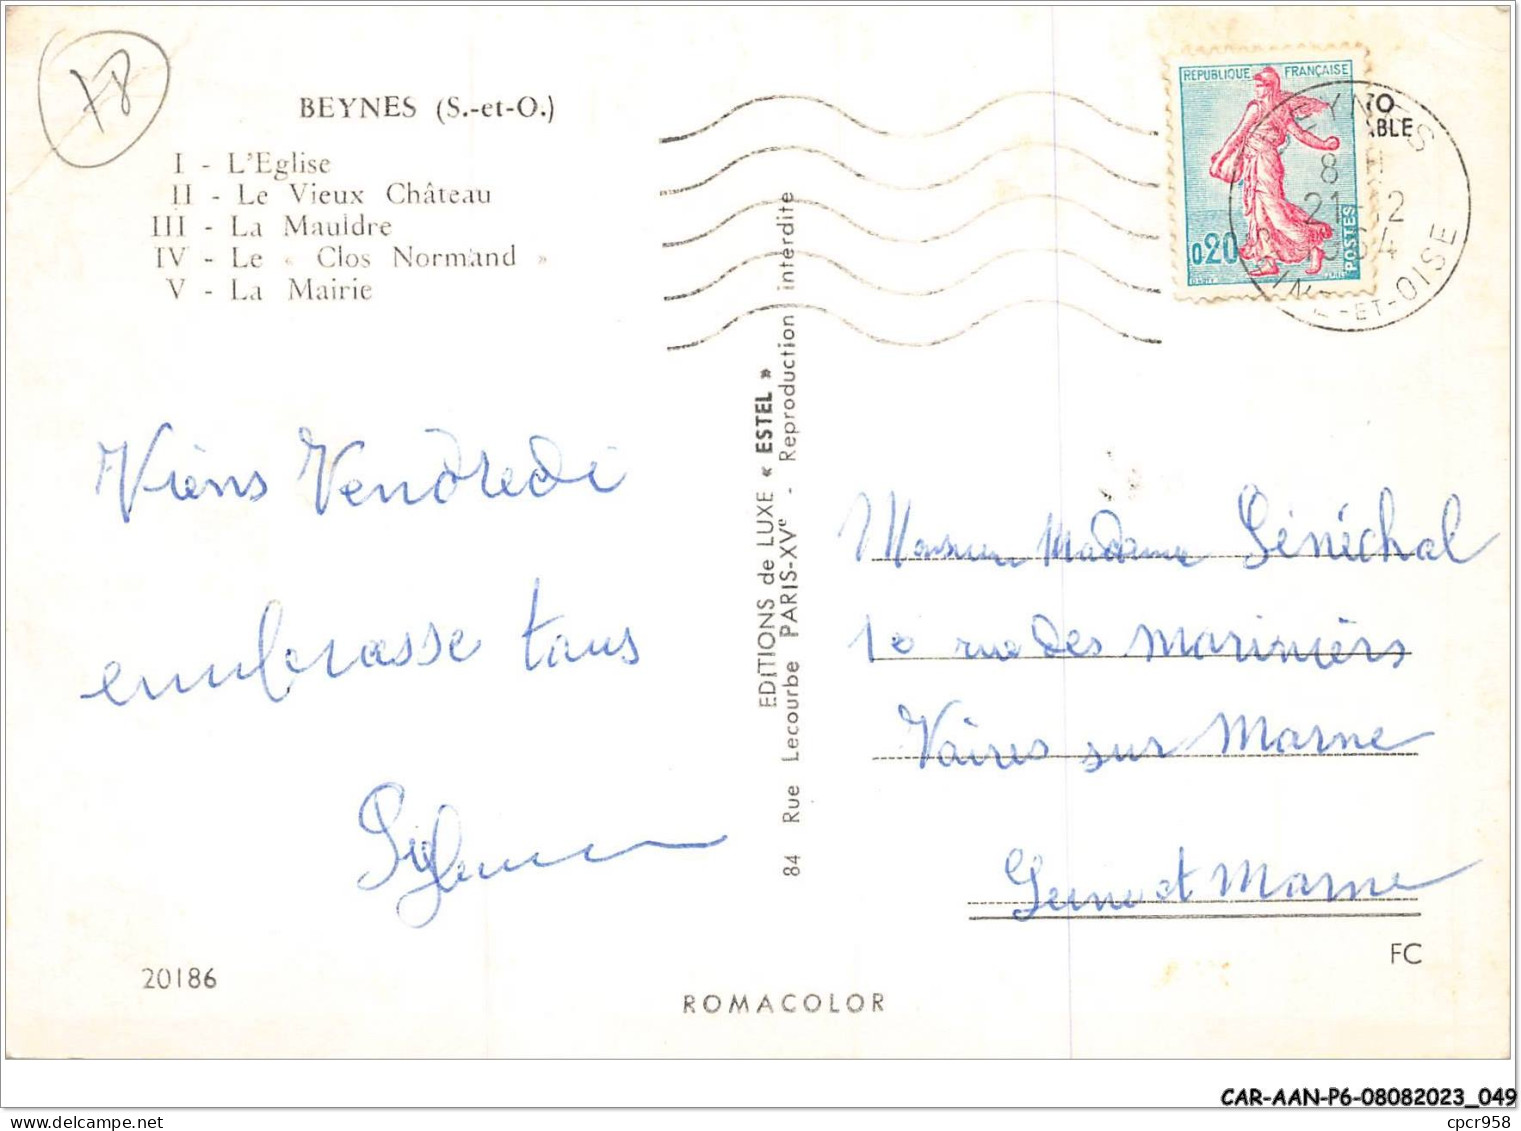 78
BEYNES (S.-et-O.)
I - L'Eglise
II - Le Vieux Château
III - La Mauldre
IV - Le « Clos Normand »
V - La Mairie
REPUBLIQUE FRANÇAISE
0,20
POSTES
TO
ABLE
BEYNES
8 H
21-12
1964
SEINE-ET-OISE
EDITIONS de LUXE « ESTEL »
84 Rue Lecourbe PARIS-XVe - Reproduction interdite
Viens Vendredi
embrasse tous
Monsieur Madame Sénéchal
10 rue des mariniers
Vaires sur Marne
Seine et Marne
FC
20186
ROMACOLOR
CAR-AAN-P6-08082023_049
delcampe.net
cpcr958